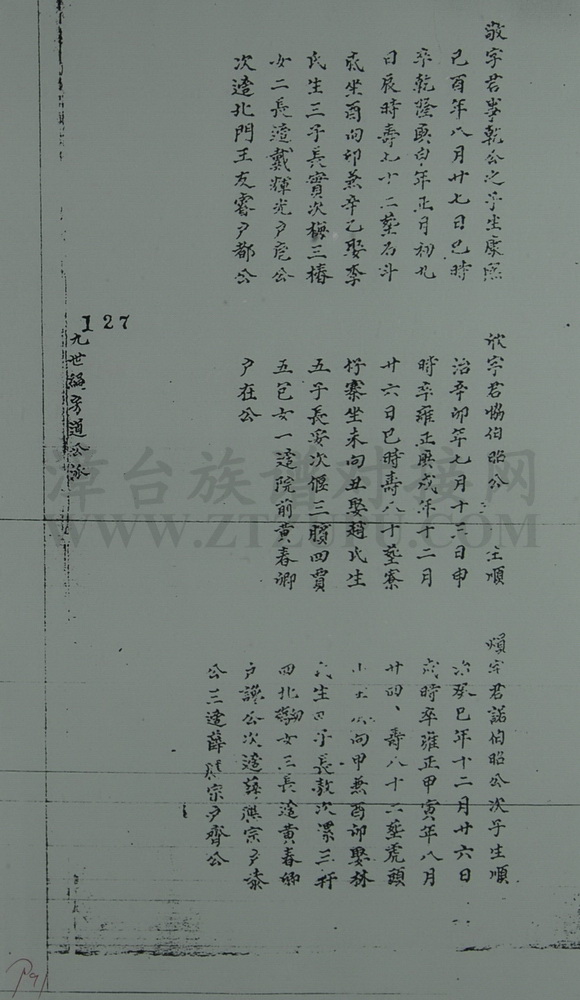 敬字君峯乾公之子生康熙
己酉年八月廿七日巳時
卒乾隆庚申年正月初九
日辰時壽七十二葬石斗
坑坐酉向卯兼辛乙娶李
氏生三子長實次梅三椿
女二長適戴輝光戶尾公
次適北門王友睿戶都公
127
九世福房道公派
字君協伯昭公 生順
治辛卯年七月十三日申
時卒雍正庚戌年十二月
廿六日巳時壽八十葬寮
仔寨坐未向丑娶趙氏生
五子長安次偃三 四賈
五包女一適院前黃春卿
戶在公
字君諾伯昭公次子生順
治癸巳年十二月廿六日
戌時卒雍正甲寅年八月
廿四、壽八十二葬虎頭
向甲兼酉卯娶林
氏生四子長敖次漂三
四北 女三長適黃春卿
戶讒公次適薛 宗戶泰
公三適薛 宗戶齊公
漳台族譜对接网
WWW.ZTZUPU.COM
P91